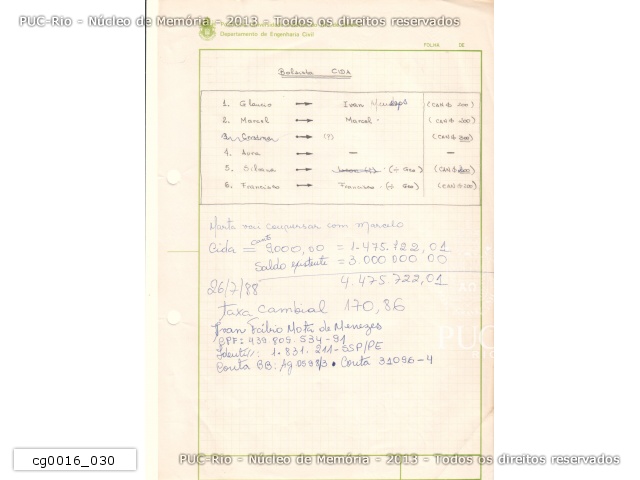 PUC-Rio - Núcleo de Memória - 2013 - Todos os direitos reservados
Departamento de Engenharia Civil
FOLHA DE
Bolsista CIDA
1. Glaucio Ivan Menezes (CAN$ 200)
2. Marcel Marcel. (CAN$ 200)
3. (?) (CAN$ 300)
4. Aura - -
5. Silvana . (÷ Geo) (CAN$ 200)
6. Francisco Francisco . (÷ Geo) (CAN$ 200)
Marta vai conversar com Marcelo
Cida = Can$ 9000,00 = 1.475.722,01
Saldo existente = 3.000 000 00
26/7/88 4.475.722,01
taxa cambial 170,86
Ivan Fábio Mota de Menezes
CPF: 439.809.534-91
Ident: 1.831.211-SSP/PE
Conta BB: Ag 0598/3 • Conta 31096-4
PUC
cg0016_030
PUC-Rio - Núcleo de Memória - 2013 - Todos os direitos reservados